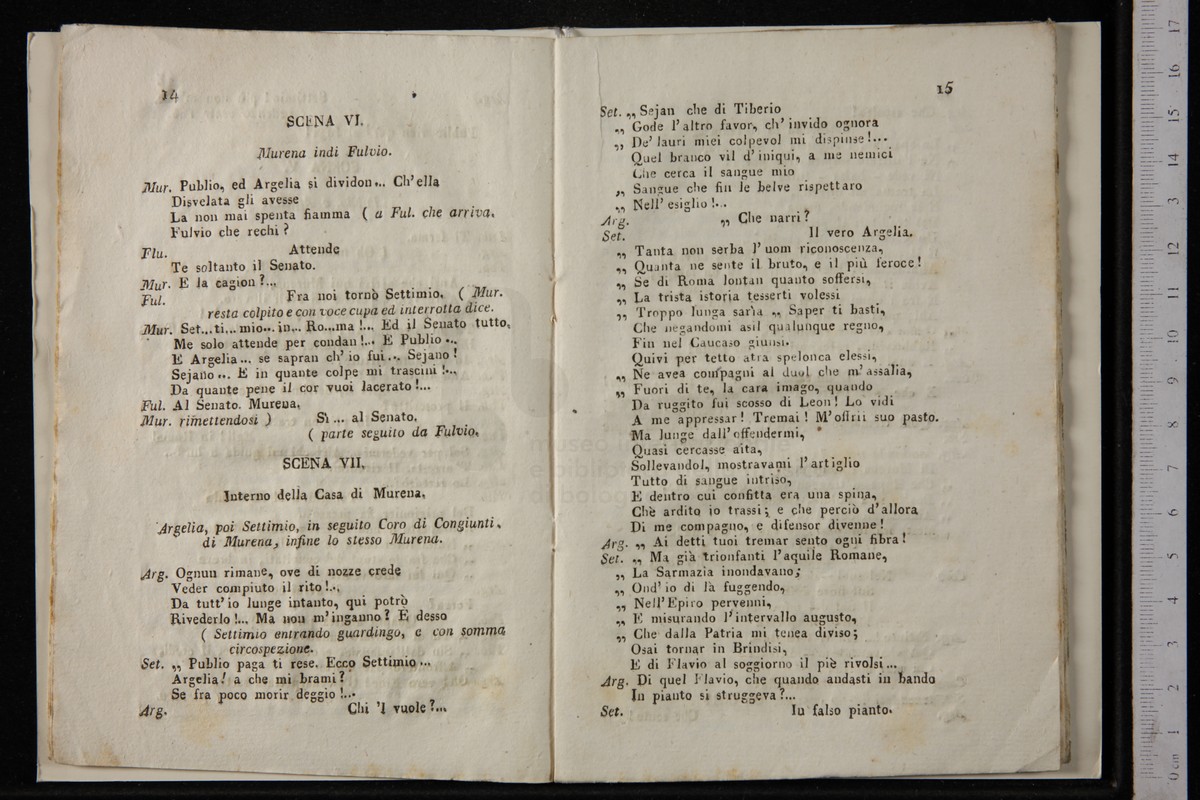 14
SCENA VI.
Murena indi Fulvio.
Mur. Publio, ed Argelia si dividon... Ch'ella
Disvelata gli avesse
La non mai spenta fiamma ( a Ful. che arriva.
Fulvio che rechi ?
Flu. Attende
Te soltanto il Senato.
Mur. E la cagion ?...
Ful. Fra noi tornò Settimio. ( Mur.
resta colpito e con voce cupa ed interrotta dice.
Mur. Set...ti... mio... in... Ro...ma !... Ed il Senato tutto,
Me solo attende per condan !... E Publio ...
E Argelia ... se sapran ch' io fui ... Sejano !
Sejano ... E in quante colpe mi trascini !...
Da quante pene il cor vuoi lacerato !...
Ful. Al Senato. Murena,
Mur. rimettendosi ) Sì ... al Senato.
( parte seguito da Fulvio.
SCENA VII.
Interno della Casa di Murena.
Argelia, poi Settimio, in seguito Coro di Congiunti
di Murena, infine lo stesso Murena.
Arg. Ognun rimane, ove di nozze crede
Veder compiuto il rito !..
Da tutt' io lunge intanto, quì potrò
Rivederlo !... Ma non m'inganno ? È desso
( Settimio entrando guardingo, e con somma
circospezione.
Set. „ Publio paga ti rese. Ecco Settimio ...
Argelia ! a che mi brami ?
Se fra poco morir deggio !...
Arg. Chi 'l vuole ?...
15
Set. „ Sejan che di Tiberio
„ Gode l'altro favor, ch' invido ognora
„ De' lauri miei colpevol mi dispinse !...
Quel branco vil d' iniqui, a me nemici
Che cerca il sangue mio
„ Sangue che fin le belve rispettaro
„ Nell' esiglio !..
Arg. „ Che narri ?
Set. Il vero Argelia.
„ Tanta non serba l' uom riconoscenza,
„ Quanta ne sente il bruto, e il più feroce !
„ Se di Roma lontan quanto soffersi,
„ La trista istoria tesserti volessi
„ Troppo lunga sarìa „ Saper ti basti,
Che negandomi asil qualunque regno,
Fin nel Caucaso giunsi.
Quivi per tetto atra spelonca elessi,
„ Ne avea compagni al duol che m' assalìa,
„ Fuori di te, la cara imago, quando
Da ruggito fui scosso di Leon ! Lo vidi
A me appressar ! Tremai ! M' offrii suo pasto.
Ma lunge dall' offendermi,
Quasi cercasse aita,
Sollevandol, mostravami l' artiglio
Tutto di sangue intriso,
E dentro cui confitta era una spina,
Chè ardito io trassi; e che perciò d'allora
Di me compagno, e difensor divenne !
Arg. „ Ai detti tuoi tremar sento ogni fibra !
Set. „ Ma già trionfanti l'aquile Romane,
„ La Sarmazia inondavano;
„ Ond' io di là fuggendo,
„ Nell' Epiro pervenni,
„ E misurando l' intervallo augusto,
„ Che dalla Patria mi tenea diviso;
Osai tornar in Brindisi,
E di Flavio al soggiorno il piè rivolsi ...
Arg. Di quel Flavio, che quando andasti in bando
In pianto si struggeva ?...
Set. In falso pianto.